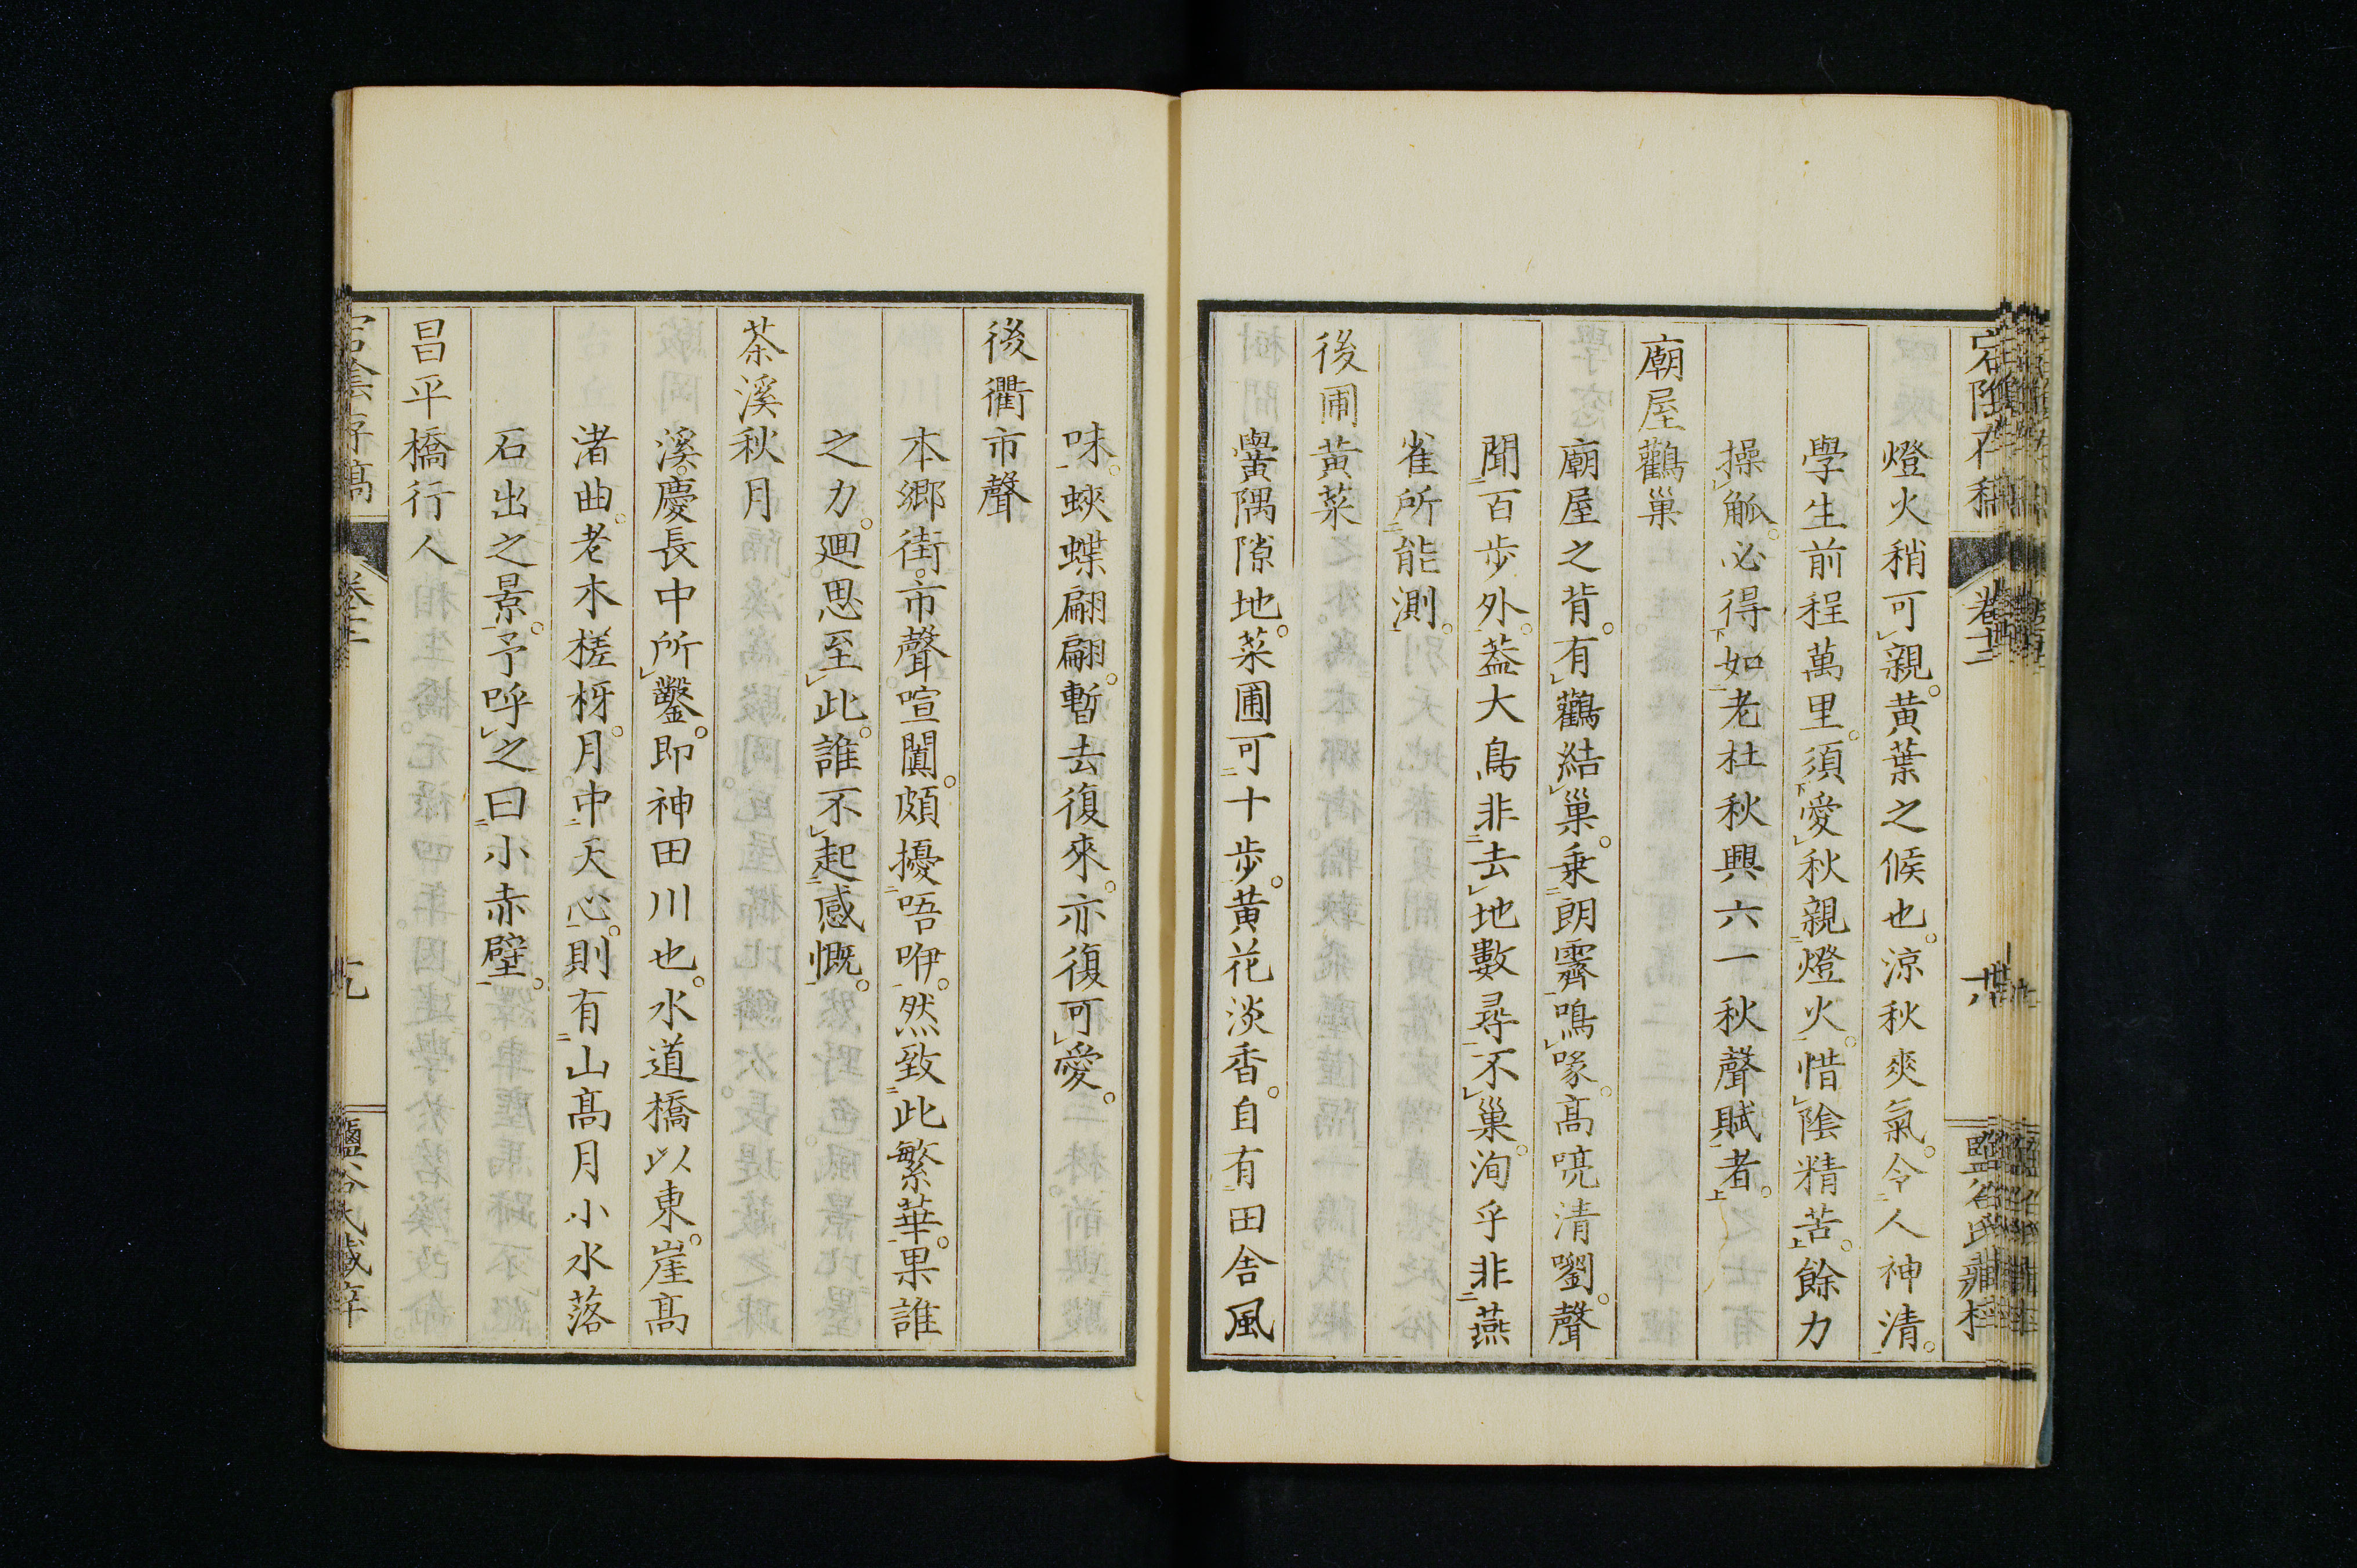 燈火稍可親。黃葉之候也。涼秋爽氣。令人神清。
學生前程萬里。須愛秋親燈火。惜陰精苦。餘力
操觚。必得如老杜秋興六一秋聲賦者。
廟屋鸛巢
廟屋之背。有鸛結巢。乗朗霽鳴喙。高喨清嚠。聲
聞百步外。葢大鳥非去地數尋不巢。洵乎非燕
雀所能測。
後圃黃菜
黌隅隙地。菜圃可十步。黃花淡香。自有田舍風
味。蛺蝶翩翩。暫去復來。亦復可愛。
後衢市聲
本郷街。市聲喧闐。頗擾唔咿。然致此繁華。果誰
之力。廽思至此。誰不起感慨。
茶溪秋月
溪。慶長中所鑿。即神田川也。水道橋以東。崖高
渚曲。老木槎枒。月中天心。則有山高月小水落
石出之景。予呼之曰小赤壁。
昌平橋行人
宕陰存稿 卷十二 十九 鹽谷氏藏梓